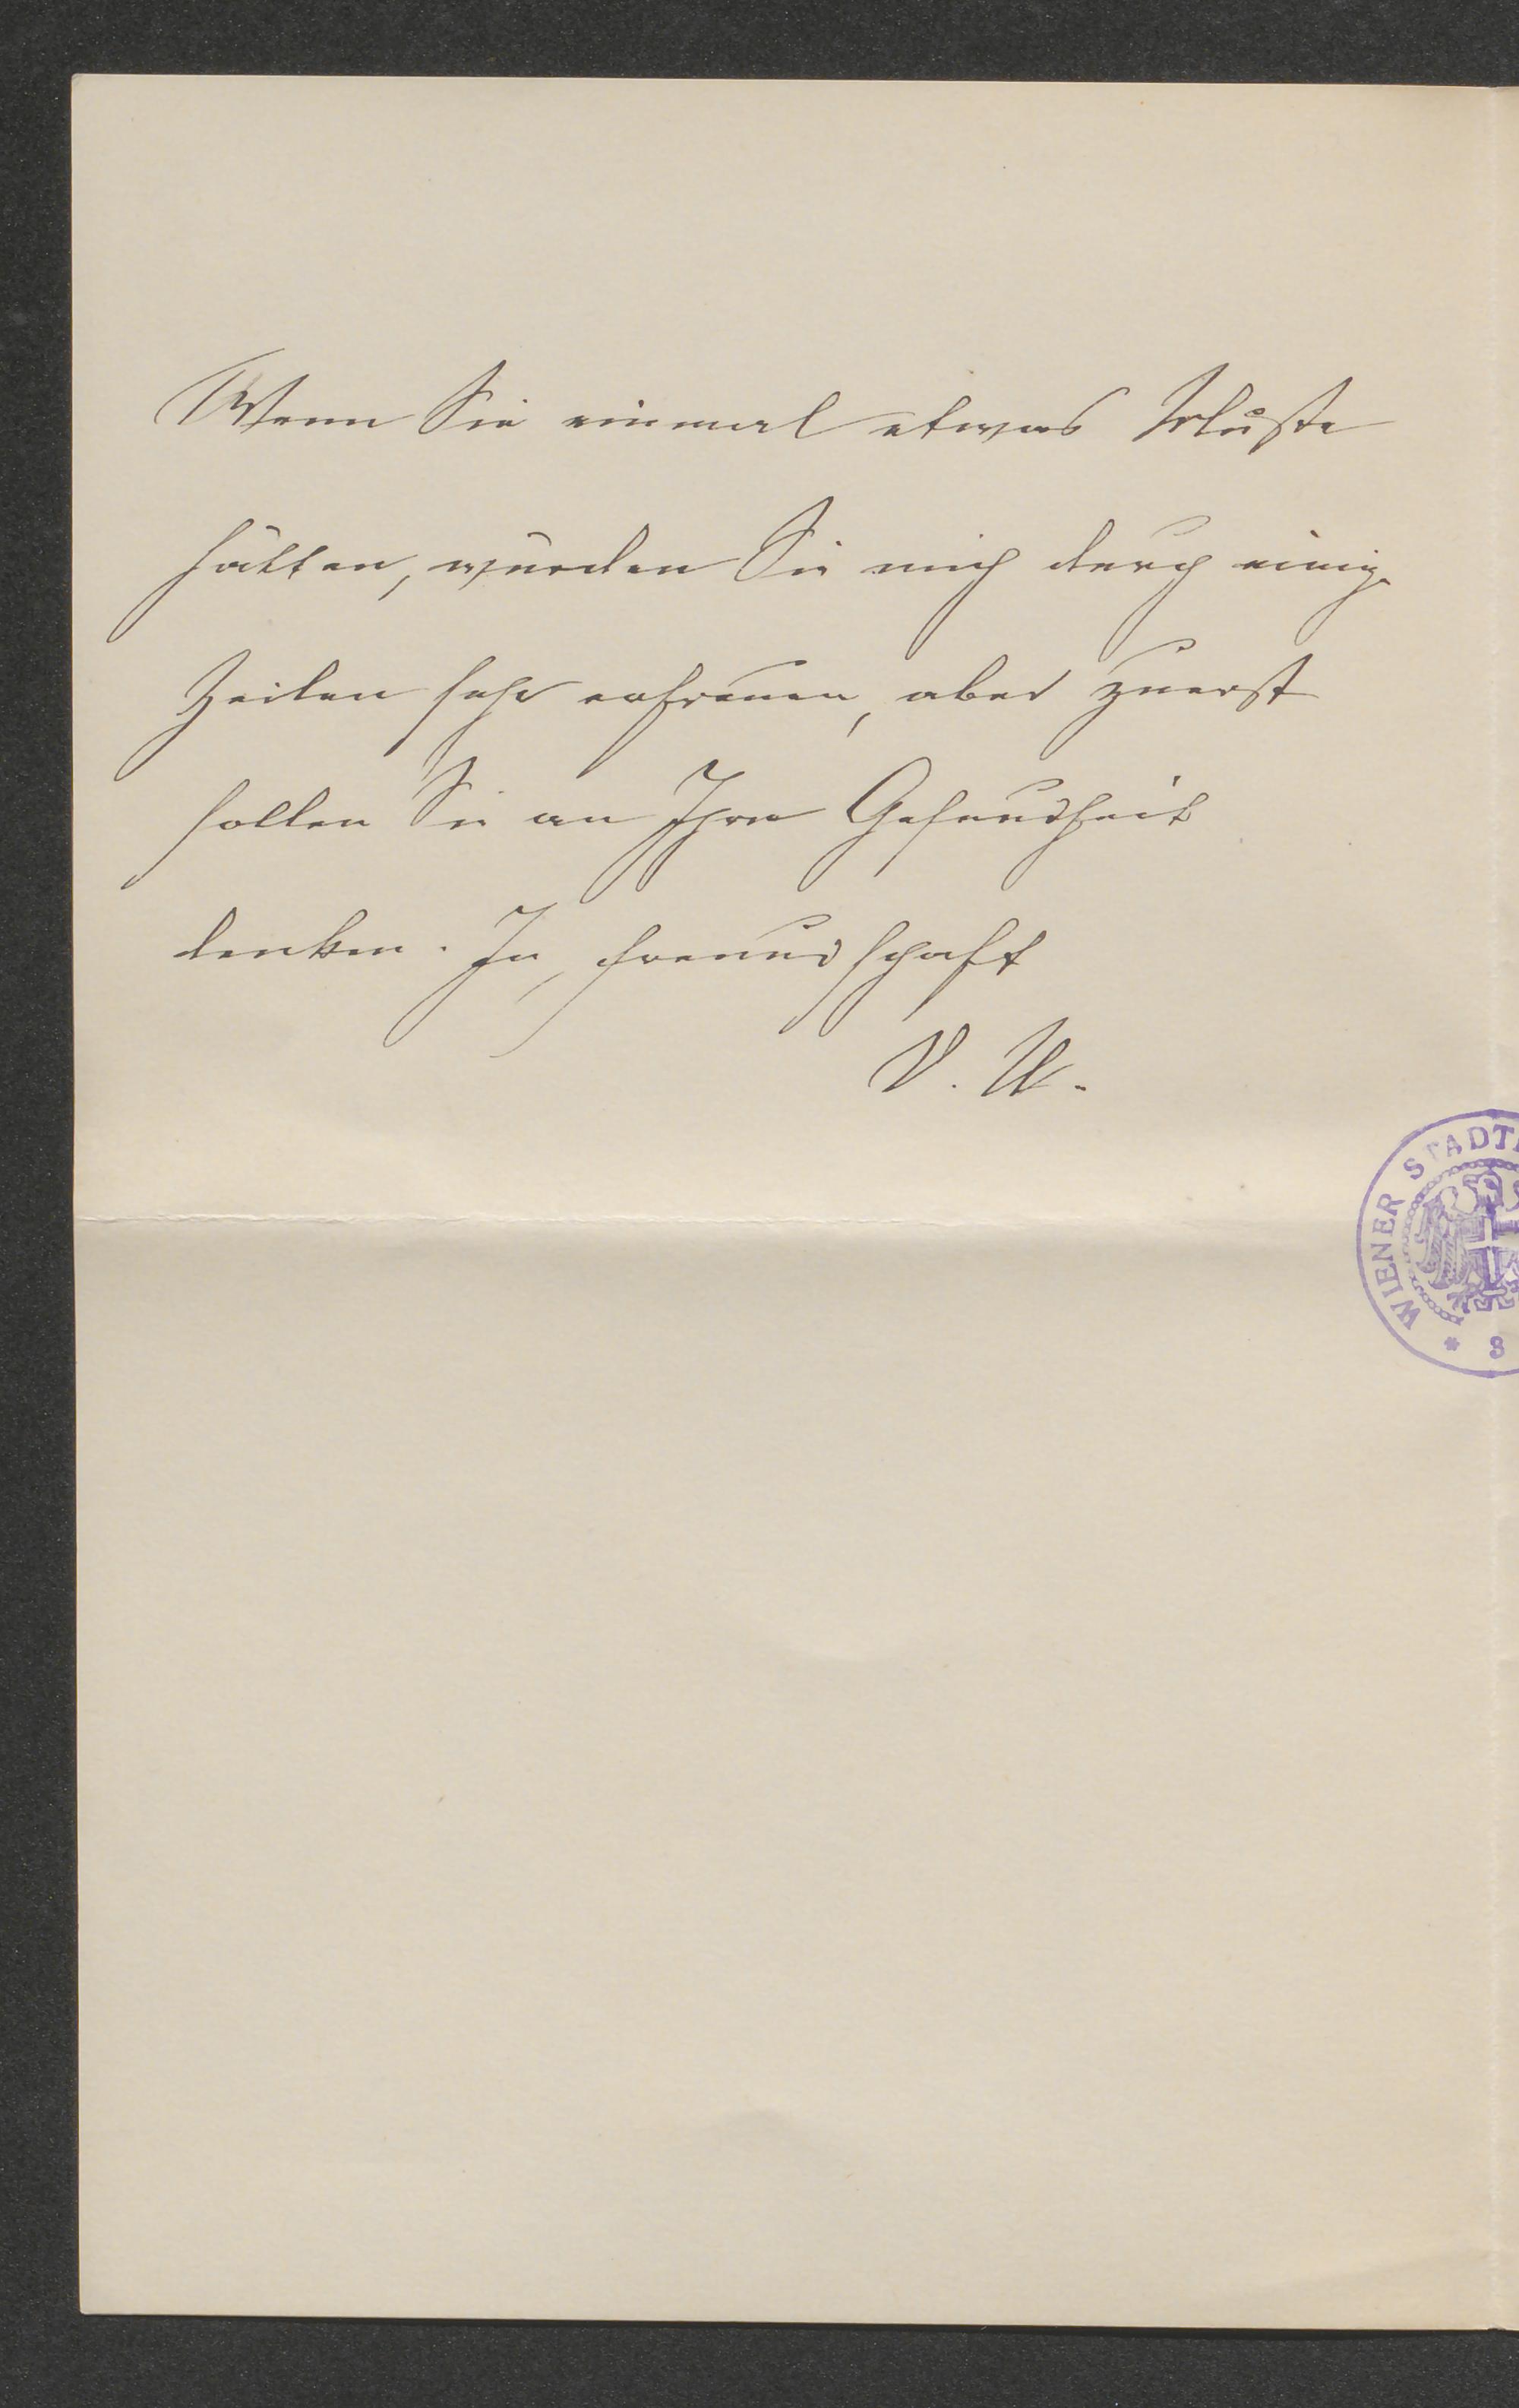 Wenn Sie einmal etwas Muße
hätten, würden Sie mich durch einige
Zeilen sehr erfreuen, aber zuerst
sollen Sie an Ihre Gesundheit
denken. In Freundschaft
V. U.
WIENER STADT
* 8